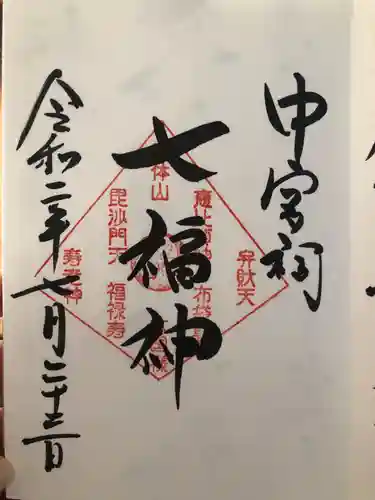 中宮祠
七福神
令和二年七月二十三日
弁財天
毘沙門天
福禄寿
寿老神